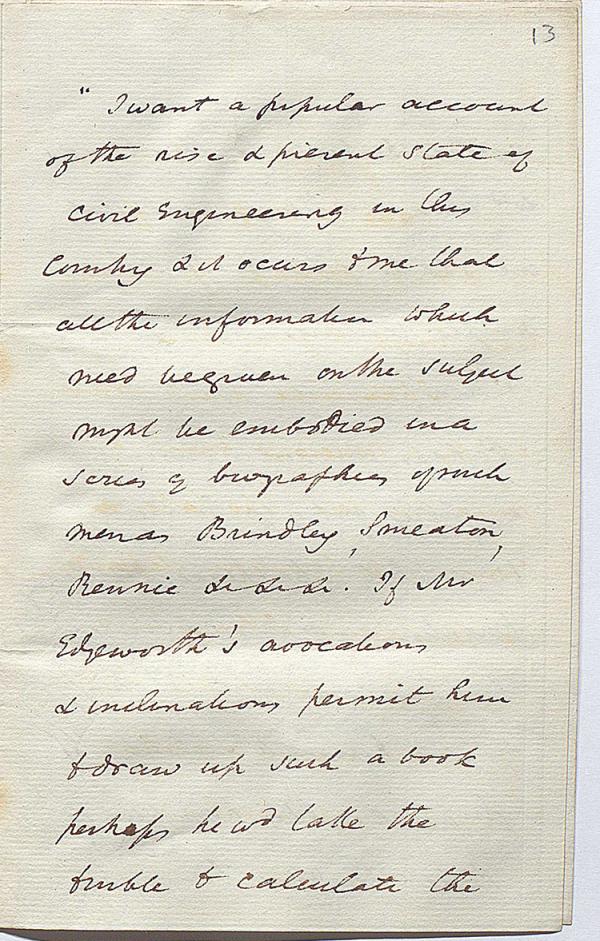 13
" I want a popular account
of the rise & present state of
Civil Engineering in this
Country & it occurs to me that
all the information which
need be given on the subject
might be embodied in a
series of biographies of such
men as Brindley, Smeaton,
Rennie &c &c &c. If Mr
Edgeworth's avocations
& inclinations permit him
to draw up such a book
perhaps he wd take the
trouble to calculate the